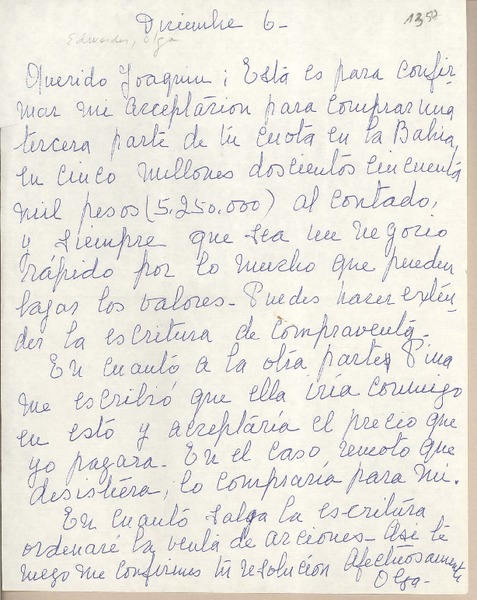 Diciembre 6-
1357
Edwards, Olga
Querido Joaquin: Esta es para confir-
mar mi acceptación para comprar una
tercera parte de tu cuota en la Bahia,
en cinco millones doscientos cincuenta
mil pesos (5.250.000) al contado,
y siempre que sea un negocio
rápido por lo mucho que pueden
bajar los valores- Puedes hacer exten-
der la escritura de compraventa-
En cuanto a la otra parte, Pina
me escribió que ella iría conmigo
en esto y acceptaría el precio que
yo pagara- En el caso remoto que
desistiera, lo compraría para mi.
En cuanto salga la escritura
ordenaré la venta de acciones- Asi te
ruego me confirmes tu resolución Afectuosamente
Olga-